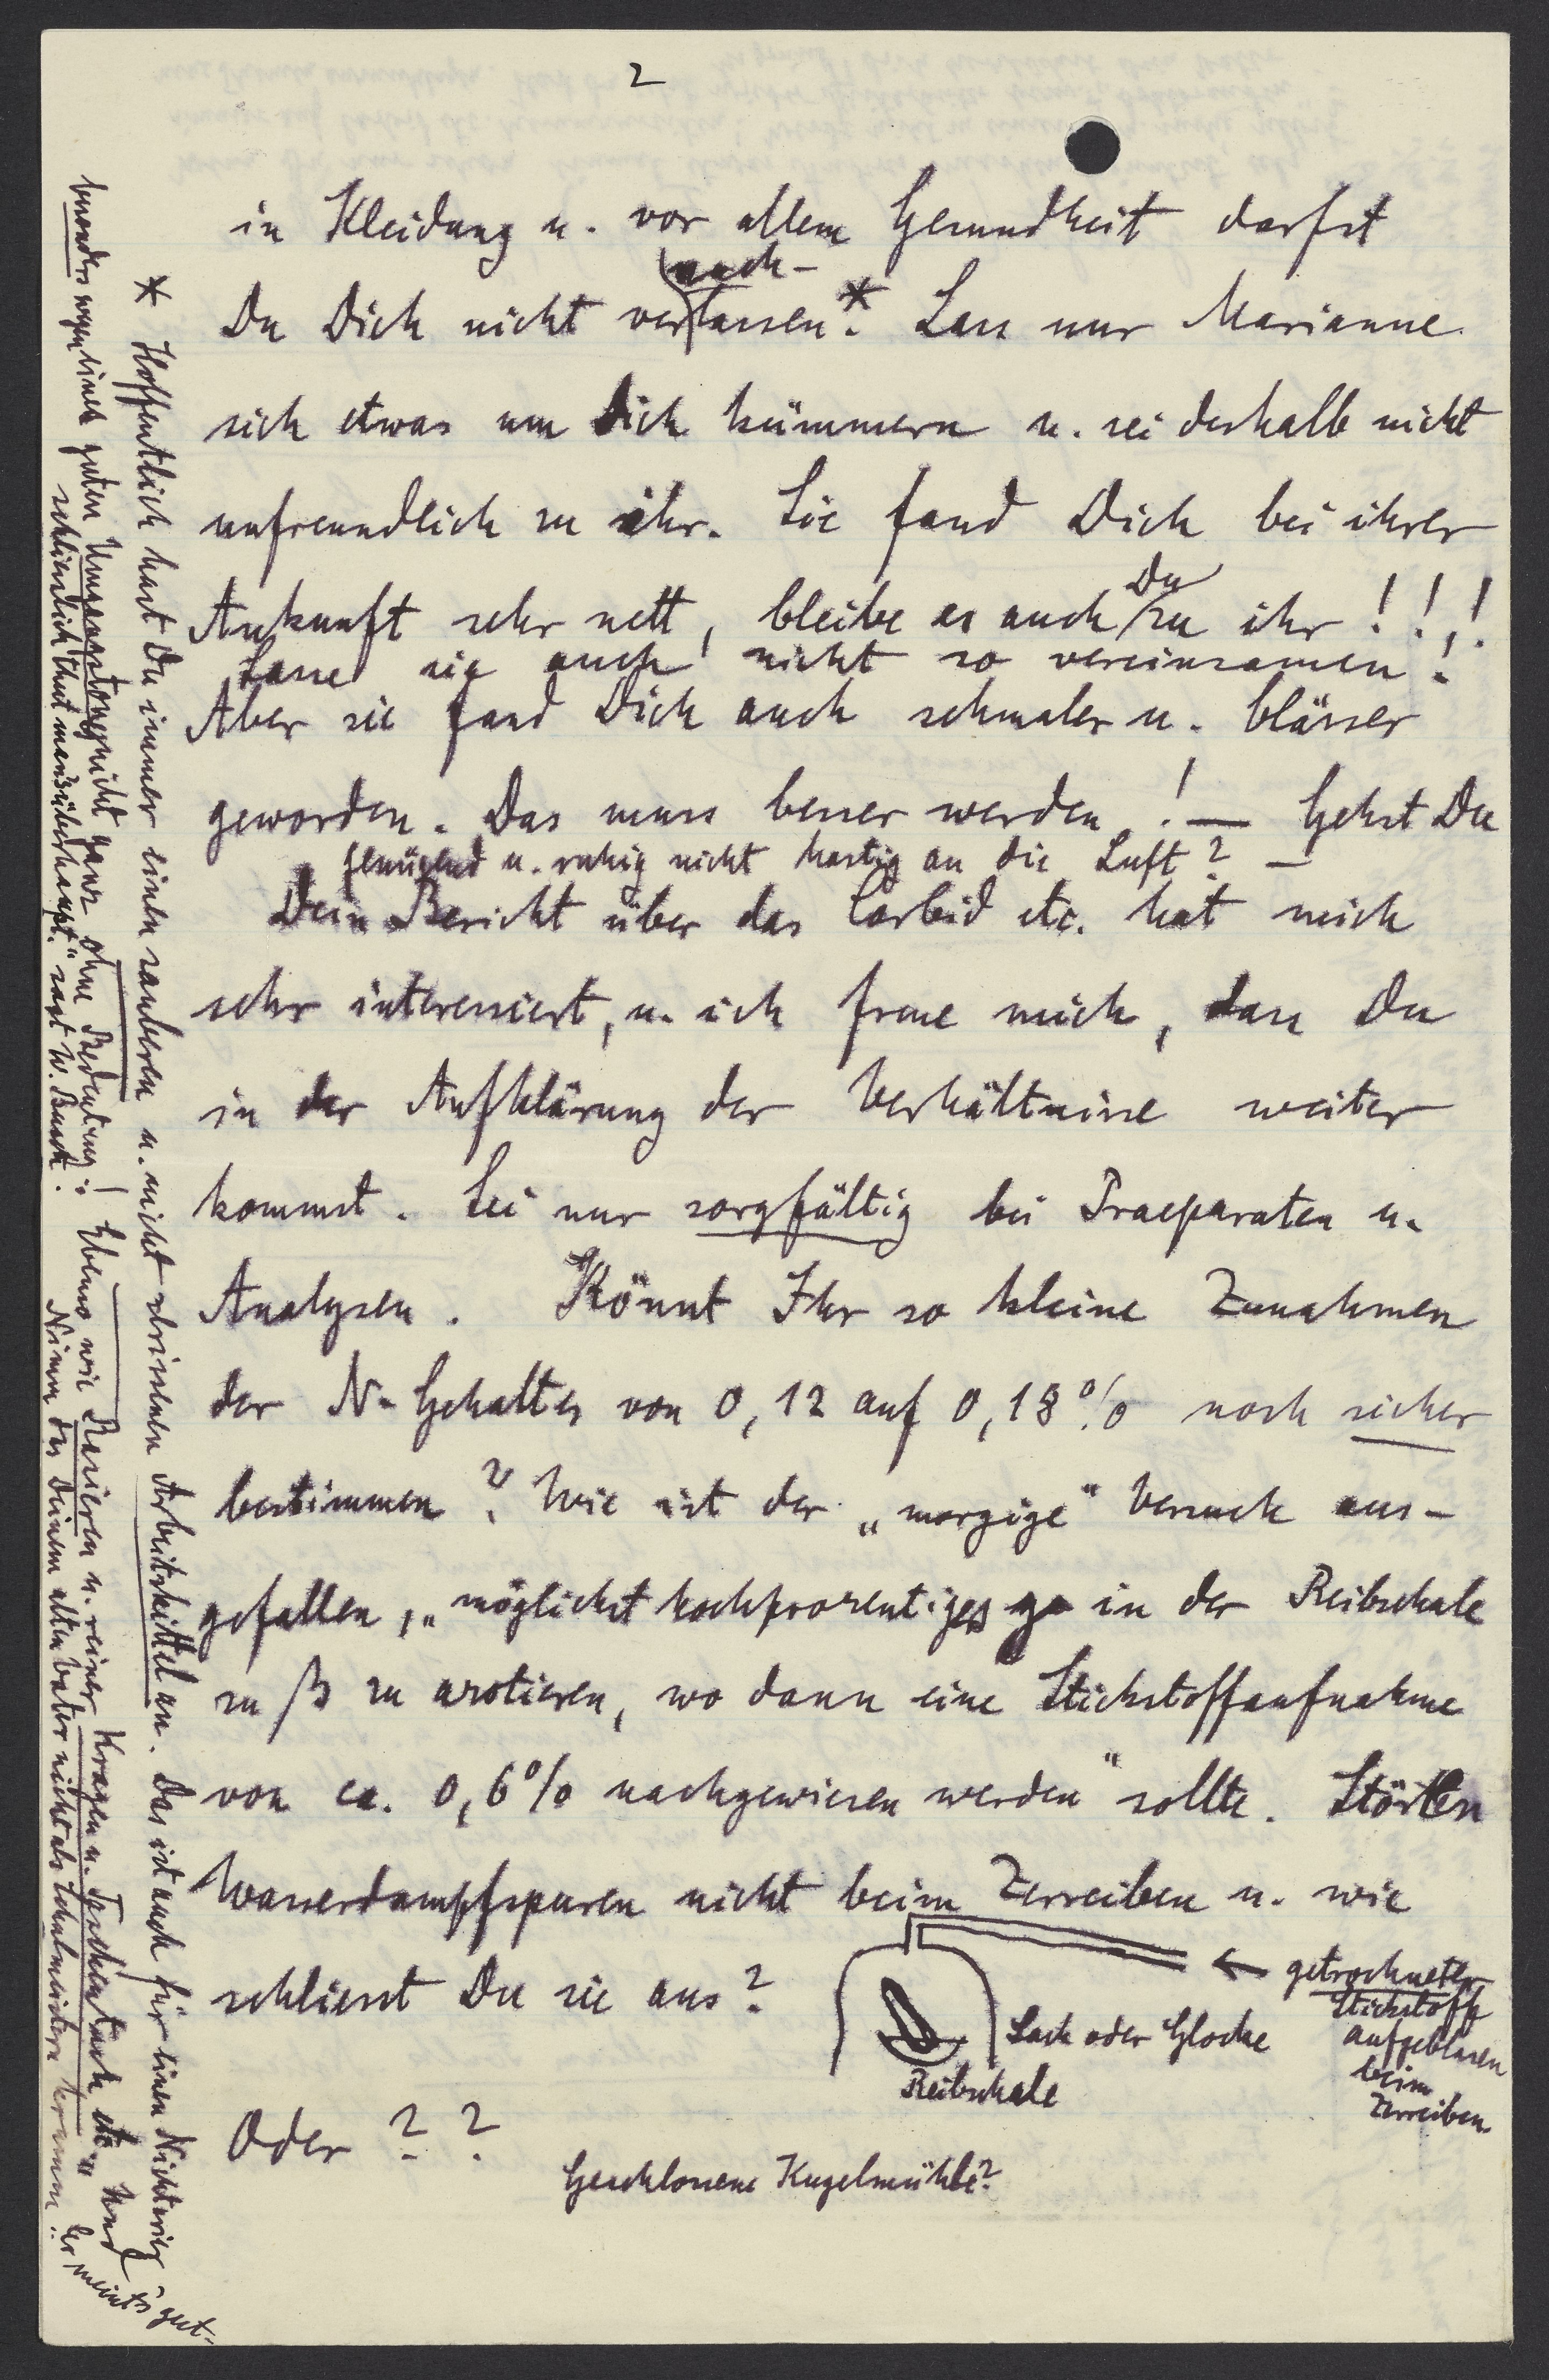 2
in Kleidung u. vor allem Gesundheit darfst
nach-
Du Dich nicht verlassen.* Lass nur Marianne
sich etwas um Dich kümmern u. sei deshalb nicht
unfreundlich zu ihr. Sie fand Dich bei ihrer
Du
Ankunft sehr nett, bleibe es auch zu ihr!!!
Lasse sie auch nicht so vereinsamen!
Aber sie fand Dich auch schmaler u. blässer
geworden. Das muss besser werden! — Gehst Du
genügend u. ruhig nicht hastig an die Luft? —
Dein Bericht über das Carbid etc. hat mich
sehr interessiert, u. ich freue mich, dass Du
in der Aufklärung der Verhältnisse weiter
kommst. Sei nur sorgfältig bei Praeparaten u.
Analysen. Könnt Ihr so kleine Zunahmen
der N-Gehaltes von 0,12 auf 0,18% noch sicher
bestimmen? Wie ist der „morgige" Versuch aus-
gefallen, „möglichst hochprozentiges in der Reibschale
zu β zu azotieren, wo dann eine Stickstoffaufnahme
von ca. 0,6% nachgewiesen werden" sollte. Störten
Wasserdampfspuren nicht beim Zerreiben u. wie
schliesst Du sie aus?
← getrockneter
Stickstoff
aufgeblasen
beim
Zerreiben.
Sack oder Glocke
Reibschale
Oder ? ?
Geschlossene Kugelmühle?
* Hoffentlich hast Du immer einen sauberen u. nicht zerissenen Arbeitskittel an. Das ist auch für einen
besonders wegen eines guten nicht ganz ohne Bedeutung! Ebenso wie Rasieren u. reiner Kragen u. Taschentuch etc." Und
schliesslich thut man's überhaupt." sagt W. Busch. Nimm das Deinem alten Vater nicht als Schulmeistern krumm!! Er meint's gut.